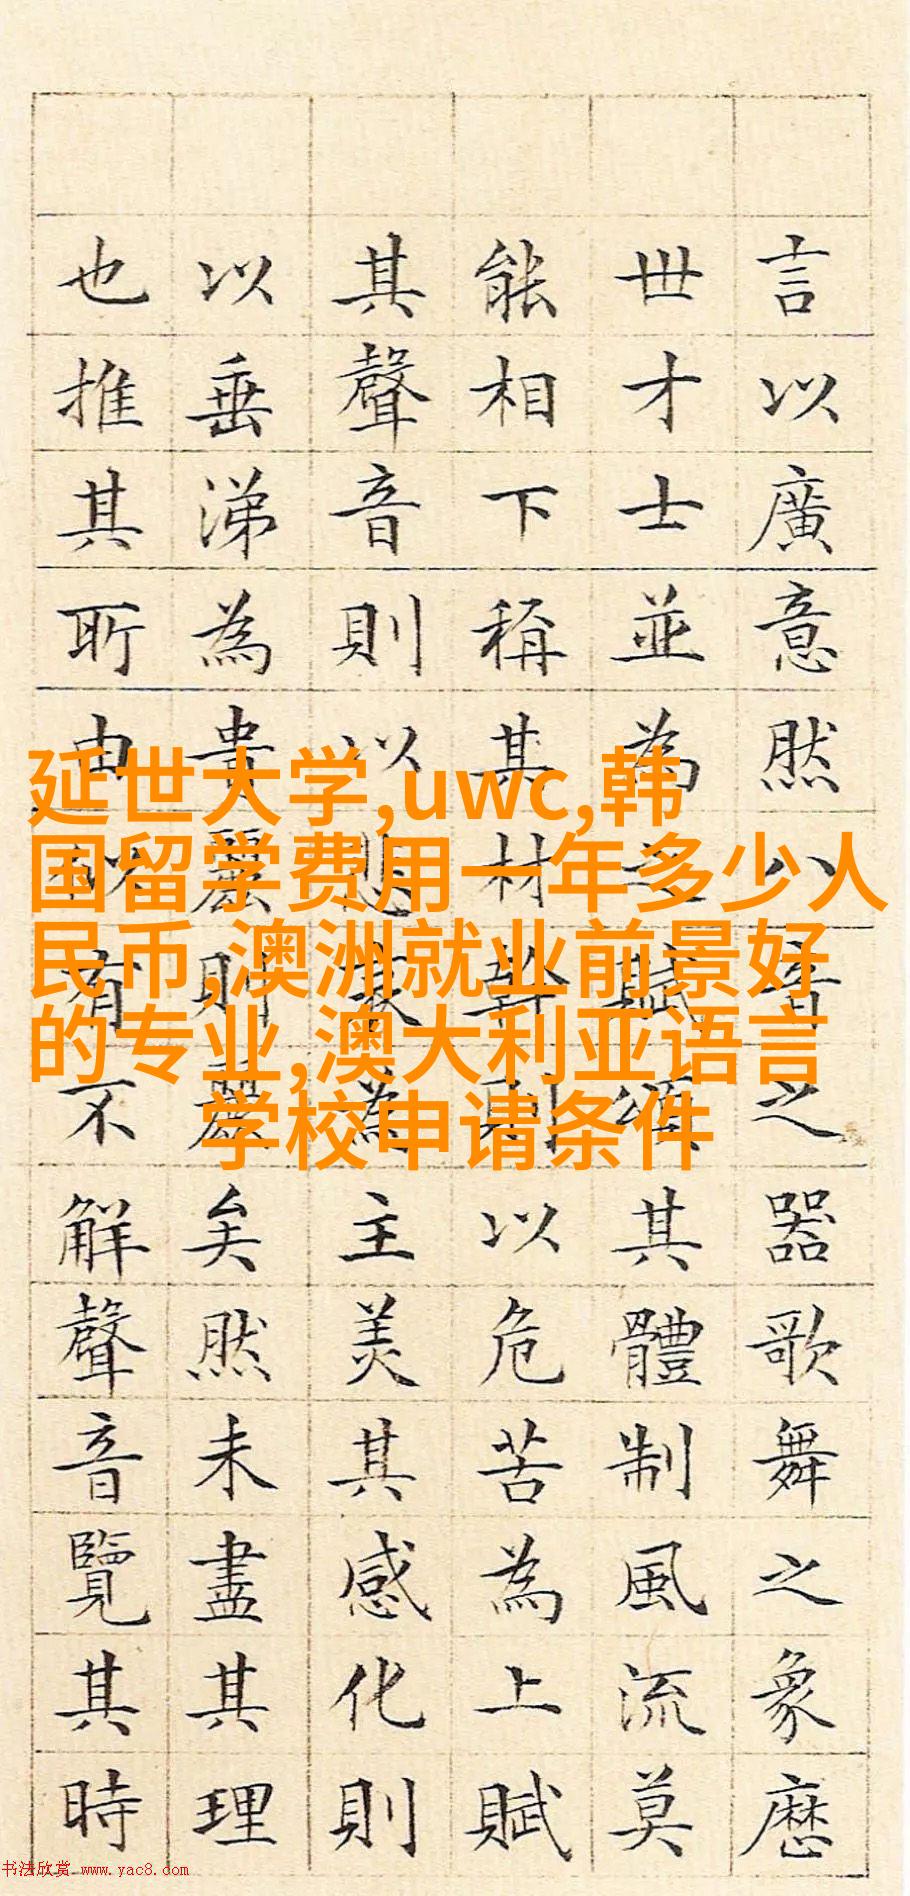 言以廣意然八音之器歌舞之象歷
世才士並為之賦頌其體制風流莫
能相下稱其材幹則以危苦為上賦
其聲音則以悲哀為主美其感化則
以垂涕為貴麗則麗矣然未盡其理
也推其所由似有不解聲音覽其時
延世大学,uwc,韩
国留学费用一年多少人
民币,澳洲就业前景好
的专业,澳大利亚语言
学校申请条件
书法欣赏 www.yac8.com